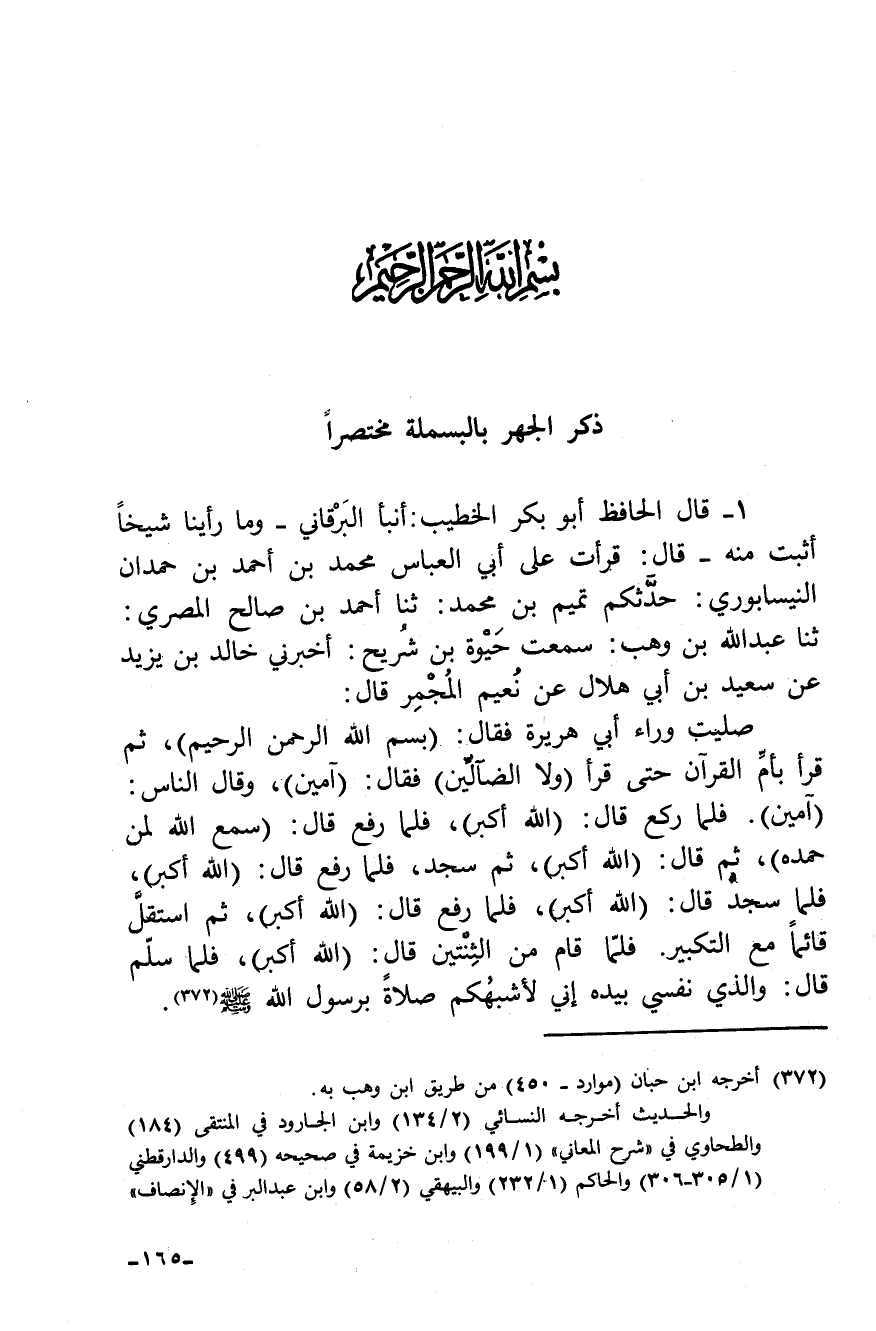 بسم الله الرحمن الرحيم
ذكر الجهر بالبسملة مختصراً
١ـ قال الحافظ أبو بكر الخطيب: أنبأ البَرْقاني ـ وما رأينا شيخاً
أثبت منه ـ قال: قرأت على أبي العباس محمد بن أحمد بن حمدان
النيسابوري: حدَّثكم تميم بن محمد: ثنا أحمد بن صالح المصري:
ثنا عبدالله بن وهب: سمعت حَيْوة بن شُريح: أخبرني خالد بن يزيد
عن سعيد بن أبي هلال عن نُعيم المُجْمِر قال:
صليت وراء أبي هريرة فقال: (بسم الله الرحمن الرحيم)، ثم
قرأ بأمِّ القرآن حتى قرأ (ولا الضآلّين) فقال: (آمين)، وقال الناس:
(آمين). فلما ركع قال: (الله أكبر)، فلما رفع قال: (سمع الله لمن
حمده)، ثم قال: (الله أكبر)، ثم سجد، فلما رفع قال: (الله أكبر)،
فلما سجد قال: (الله أكبر)، فلما رفع قال: (الله أكبر)، ثم استقلَّ
قائماً مع التكبير. فلمّا قام من الثِنْتين قال: (الله أكبر)، فلما سلّم
قال: والذي نفسي بيده إني لأشبهُكم صلاةً برسول الله ﷺ(٣٧٢).
(٣٧٢) أخرجه ابن حبان (موارد ـ ٤٥٠) من طريق ابن وهب به.
والحديث أخرجه النسائي (١٣٤/٢) وابن الجارود في المنتقى (١٨٤)
والطحاوي في «شرح المعاني» (١٩٩/١) وابن خزيمة في صحيحه (٤٩٩) والدارقطني
(٣٠٥/١ـ٣٠٦) والحاكم (٢٣٢/١) والبيهقي (٥٨/٢) وابن عبدالبر في «الإنصاف»
ـ١٦٥ـ